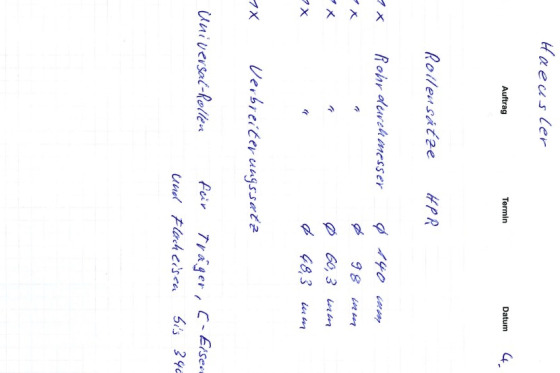 Haeusler
Auftrag Termin Datum 4.
Rollensätze HPR
1x Rohrdurchmesser ⌀ 140 mm
1x " ⌀ 98 mm
1x " ⌀ 60,3 mm
1x " ⌀ 48,3 mm
1x Verbreiterungssatz
Universal-Rollen für Träger, C-Eisen
und Flacheisen bis 340